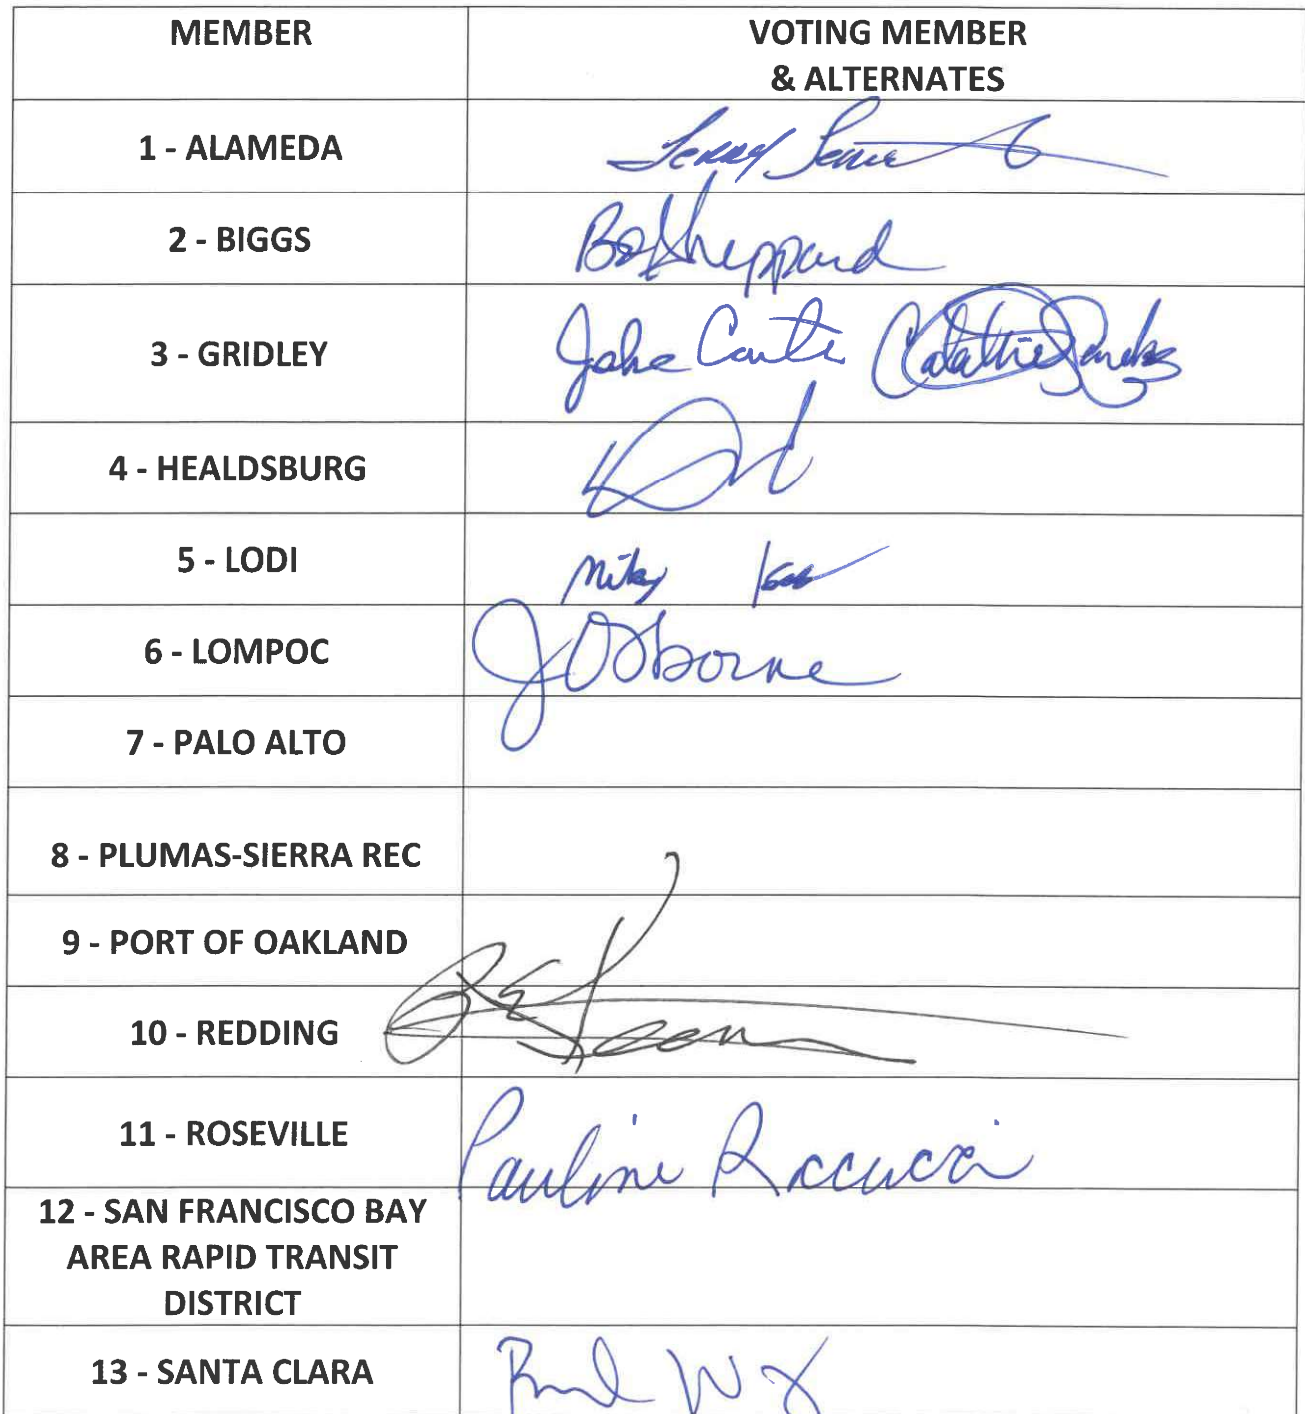 MEMBER
VOTING MEMBER
& ALTERNATES
1 - ALAMEDA
2 - BIGGS Bo Sheppard
3 - GRIDLEY Jake Catherine
4 - HEALDSBURG
5 - LODI
6 - LOMPOC J Osborne
7 - PALO ALTO
8 - PLUMAS-SIERRA REC
9 - PORT OF OAKLAND
10 - REDDING
11 - ROSEVILLE Pauline Roccucci
12 - SAN FRANCISCO BAY
AREA RAPID TRANSIT
DISTRICT
13 - SANTA CLARA